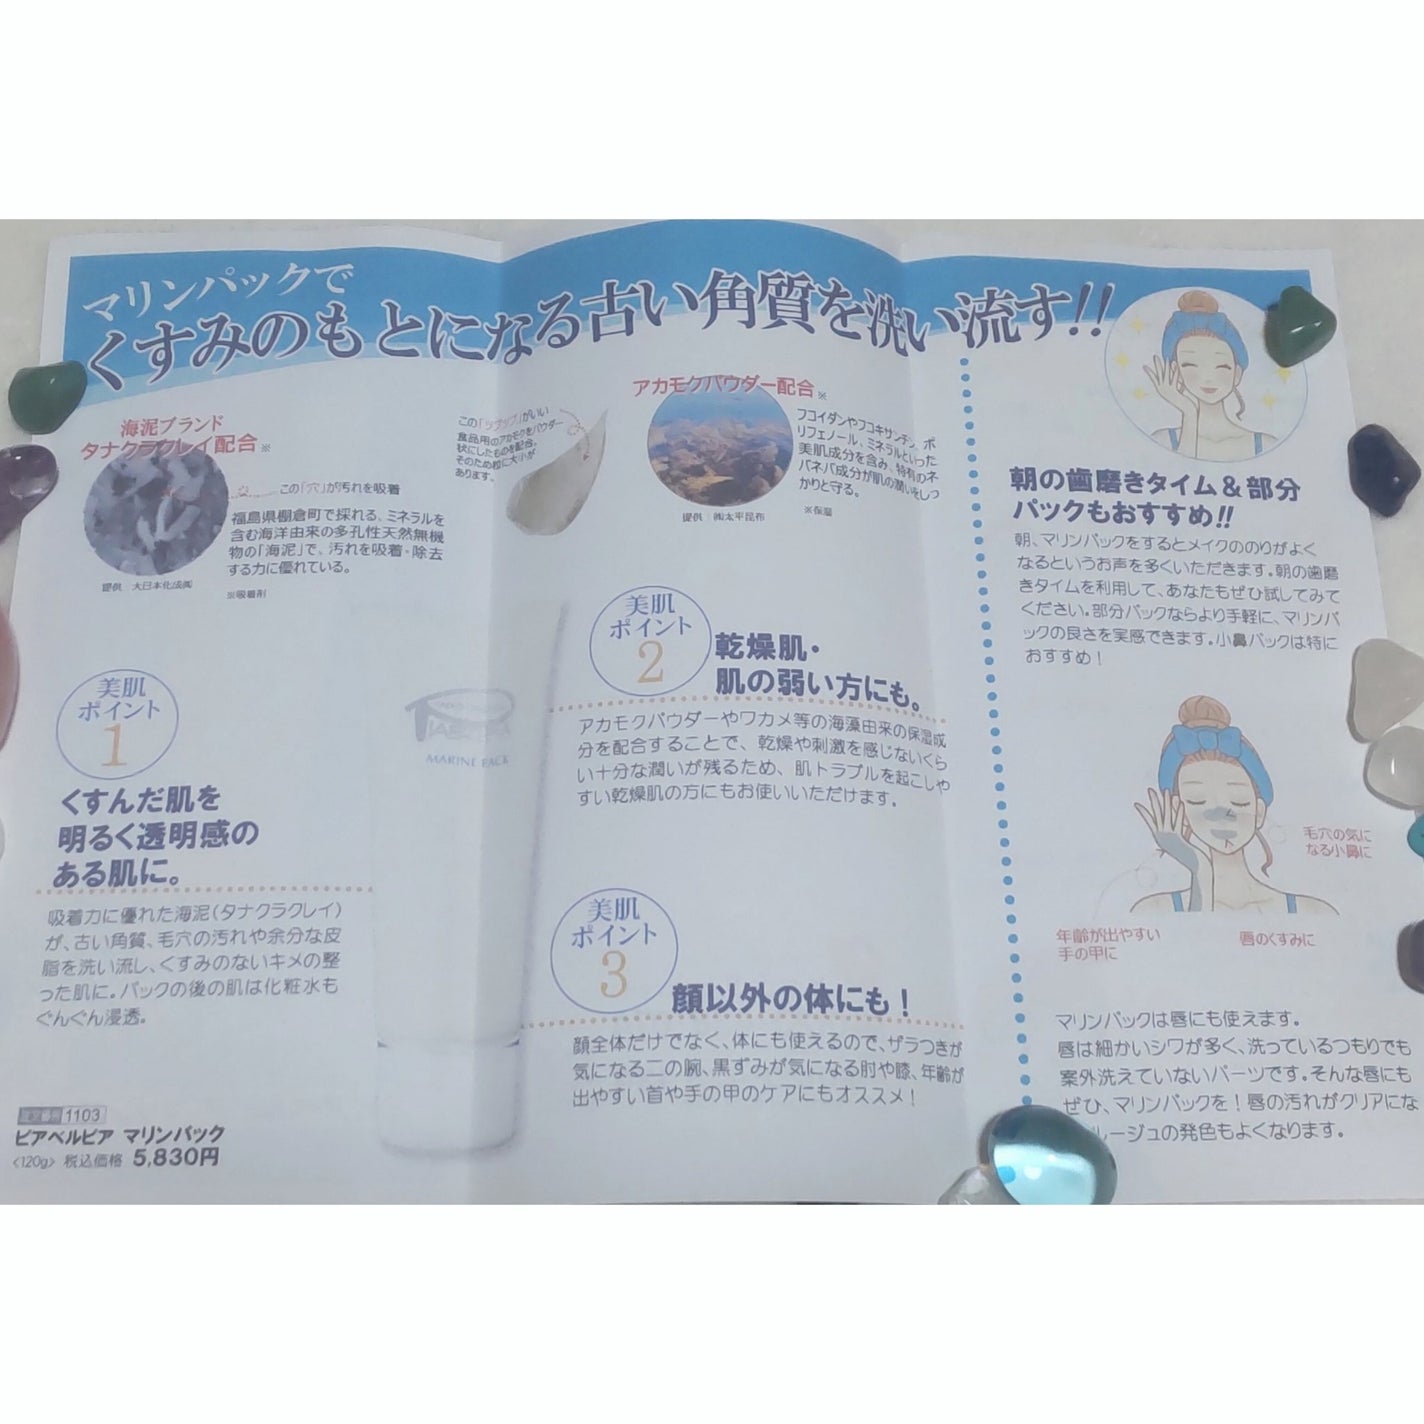 マリンパックで
くすみのもとになる古い角質を洗い流す!!
海泥ブランド
タナクラクレイ配合※
この「穴」が汚れを吸着
福島県棚倉町で採れる、ミネラルを
含む海洋由来の多孔性天然無機
物の「海泥」で、汚れを吸着・除去
する力に優れている。
提供 大日本化成㈱
※吸着剤
この「ツブツブ」がいい
食品用のアカモクをパウダー
状にしたものを配合。
そのため粒に大小が
あります。
アカモクパウダー配合※
フコイダンやフコキサンチン、ポ
リフェノール、ミネラルといった
美肌成分を含み、特有のネ
バネバ成分が肌の潤いをしっ
かりと守る。
提供:㈱太平昆布
※保湿
美肌
ポイント
1
くすんだ肌を
明るく透明感の
ある肌に。
吸着力に優れた海泥(タナクラクレイ)
が、古い角質、毛穴の汚れや余分な皮
脂を洗い流し、くすみのないキメの整
った肌に。パックの後の肌は化粧水も
ぐんぐん浸透。
1103
ピアベルピア マリンパック
<120g> 税込価格 5,830円
MARINE PACK
美肌
ポイント
2
乾燥肌・
肌の弱い方にも。
アカモクパウダーやワカメ等の海藻由来の保湿成
分を配合することで、乾燥や刺激を感じないくら
い十分な潤いが残るため、肌トラブルを起こしや
すい乾燥肌の方にもお使いいただけます。
美肌
ポイント
3
顔以外の体にも!
顔全体だけでなく、体にも使えるので、ザラつきが
気になる二の腕、黒ずみが気になる肘や膝、年齢が
出やすい首や手の甲のケアにもオススメ!
朝の歯磨きタイム&部分
パックもおすすめ!!
朝、マリンパックをするとメイクののりがよく
なるというお声を多くいただきます。朝の歯磨
きタイムを利用して、あなたもぜひ試してみて
ください。部分パックならより手軽に、マリンパ
ックの良さを実感できます。小鼻パックは特に
おすすめ!
毛穴の気に
なる小鼻に
年齢が出やすい
手の甲に
唇のくすみに
マリンパックは唇にも使えます。
唇は細かいシワが多く、洗っているつもりでも
案外洗えていないパーツです。そんな唇にも
ぜひ、マリンパックを!唇の汚れがクリアにな
ルージュの発色もよくなります。